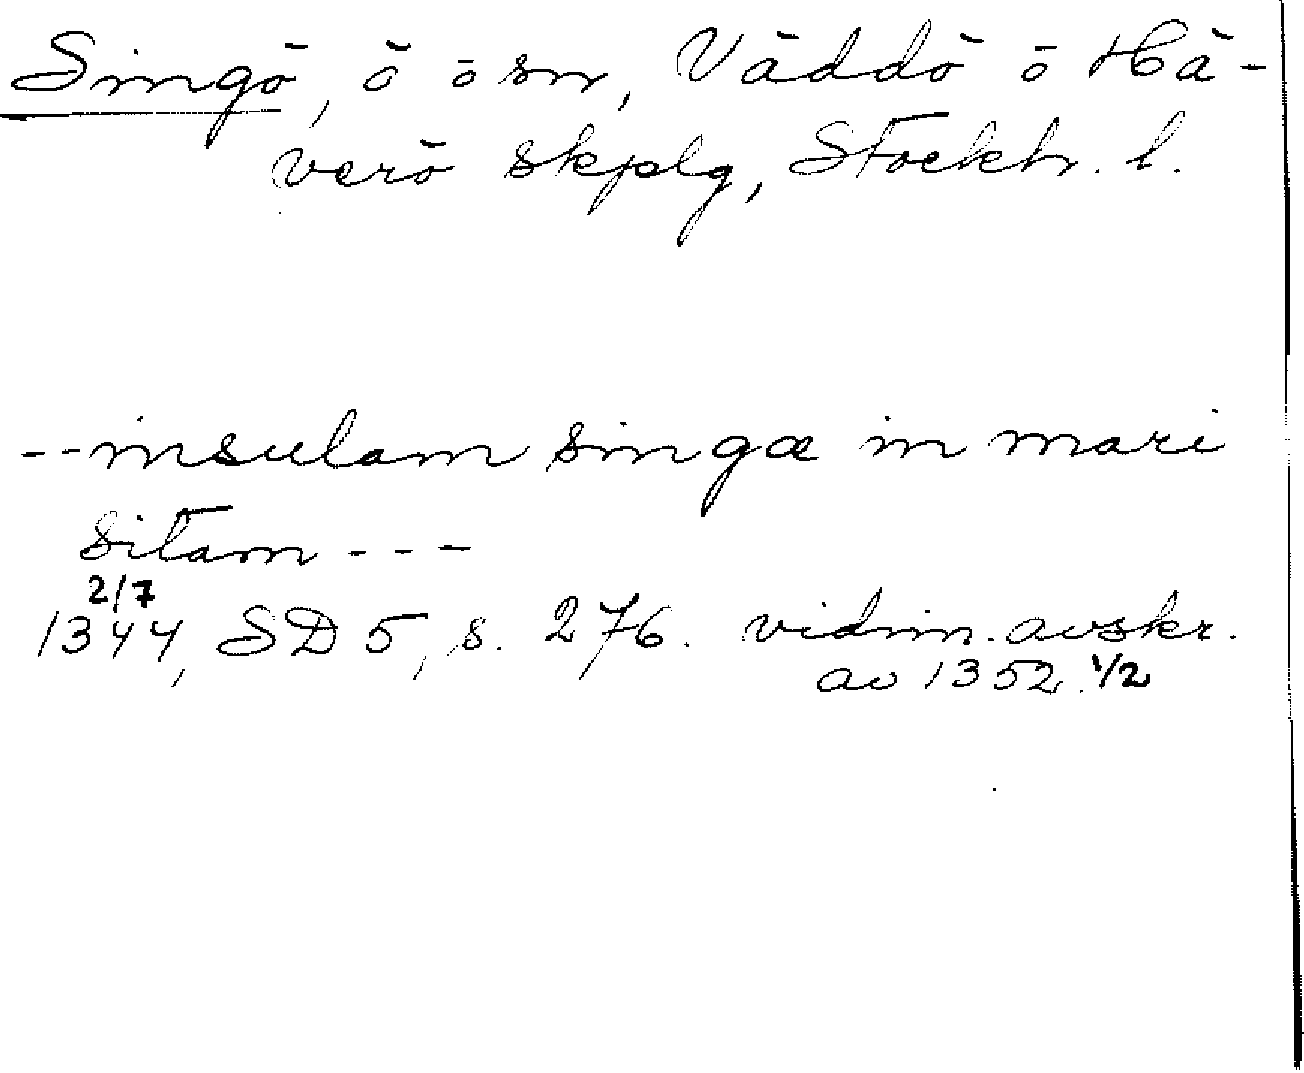 Singö, ö o sn, Väddö o Hä-
verö skplg, Stockh. l.
--insulam singæ in mari
sitam ---
2/7
1344, SD 5, s. 276. vidim. avskr.
av 1352 1/2